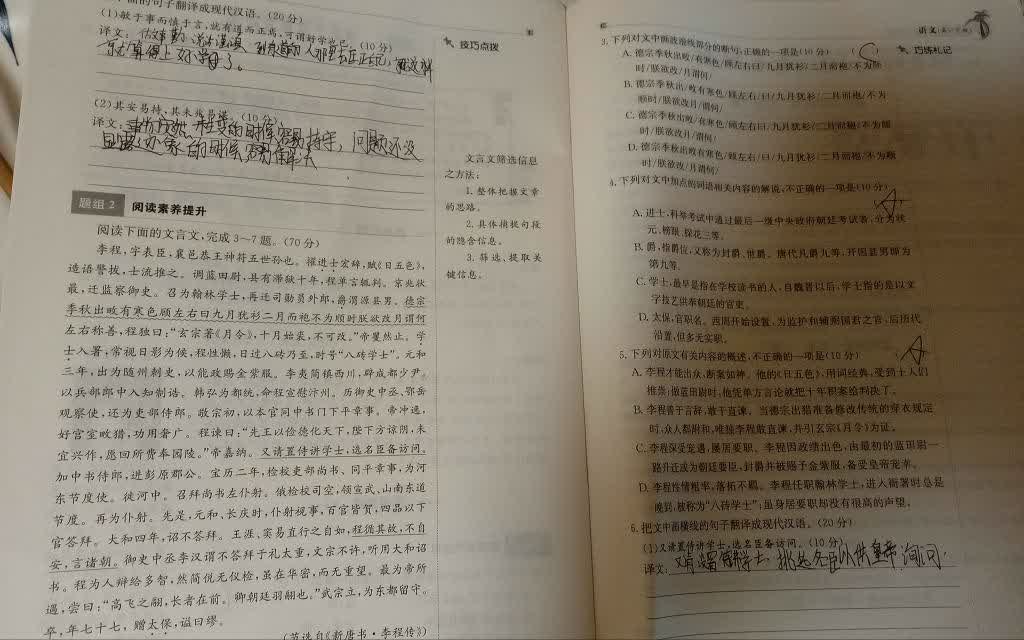 面的句子翻译成现代汉语。(20分)
(1)敏于事而慎于言,就有道而正焉,可谓好学也已。(10分)
译文:
算得上好学了。
(2)其安易持,其未兆易谋。(10分)
译文:
的时候容易持守,问题还没
的时候容易解决
题组2 阅读素养提升
阅读下面的文言文,完成3~7题。(70分)
李程,字表臣,襄邑恭王神符五世孙也。擢进士宏辞,赋《日五色》,
造语警拔,士流推之。调蓝田尉,县有滞狱十年,程单言辄判。京兆状
最,迁监察御史。召为翰林学士,再迁司勋员外郎,爵渭源县男。德宗
季秋出畋有寒色顾左右曰九月犹衫二月而袍不为顺时朕欲改月谓何
左右称善,程独曰:“玄宗著《月令》,十月始裘,不可改。”帝矍然止。学
士入署,常视日影为候,程性懒,日过八砖乃至,时号“八砖学士”。元和
三年,出为随州刺史,以能政赐金紫服。李夷简镇西川,辟成都少尹。
以兵部郎中入知制诰。韩弘为都统,命程宣慰汴州。历御史中丞、鄂岳
观察使,还为吏部侍郎。敬宗初,以本官同中书门下平章事。帝冲逸,
好宫室畋猎,功用奢广。程谏曰:“先王以俭德化天下,陛下方谅阴,未
宜兴作,愿回所费奉园陵。”帝嘉纳。又请置侍讲学士,选名臣备访问。
加中书侍郎,进彭原郡公。宝历二年,检校吏部尚书、同平章事,为河
东节度使。徙河中。召拜尚书左仆射。俄检校司空,领宣武、山南东道
节度。再为仆射。先是,元和、长庆时,仆射视事,百官皆贺,四品以下
官答拜。大和四年,诏不答拜。王涯、窦易直行之自如,程循其故,不自
安,言诸朝。御史中丞李汉谓不答拜于礼太重,文宗不许,听用大和诏
书。程为人辩给多智,然简侻无仪检,虽在华密,而无重望。最为帝所
遇,尝曰:“高飞之翮,长者在前。卿朝廷羽翮也。”武宗立,为东都留守。
卒,年七十七,赠太保,谥曰缪。
(节选自《新唐书·李程传》)
技巧点拨
文言文筛选信息
之方法:
1. 整体把握文章
的思路。
2. 具体捕捉句段
的隐含信息。
3. 筛选、提取关
键信息。
语文
巧练札记
3. 下列对文中画波浪线部分的断句,正确的一项是(10分) (C)
A. 德宗季秋出畋/有寒色/顾左右曰/九月犹衫/二月而袍/不为顺
时/朕欲改/月谓何/
B. 德宗季秋出/畋有寒色/顾左右/曰/九月犹衫/二月而袍/不为
顺时/朕欲改月/谓何/
C. 德宗季秋出畋/有寒色/顾左右曰/九月犹衫/二月而袍/不为顺
时/朕欲改月/谓何/
D. 德宗季秋出畋有寒色/顾左右/曰/九月犹衫/二月而袍/不为顺
时/朕欲改/月谓何/
4. 下列对文中加点的词语相关内容的解说,不正确的一项是(10分)
A. 进士,科举考试中通过最后一级中央政府朝廷考试者,分为状
元、榜眼、探花三等。
B. 爵,指爵位,又称为封爵、世爵。唐代凡爵九等,开国县男即为
第九等。
C. 学士,最早是指在学校读书的人,自魏晋以后,学士指的是以文
字技艺供奉朝廷的官吏。
D. 太保,官职名。西周开始设置,为监护和辅弼国君之官,后历代
沿置,但多无实职。
5. 下列对原文有关内容的概述,不正确的一项是(10分)
A. 李程才能出众,断案如神。他的《日五色》,用词经典,受到士人们
推崇;做蓝田尉时,他凭单方言论就把十年积案给判决了。
B. 李程善于言辞,敢于直谏。当德宗出猎准备修改传统的穿衣规定
时,众人都附和,唯独李程敢直谏,并引玄宗《月令》为证。
C. 李程深受宠遇,屡居要职。李程因政绩出色,由最初的蓝田尉一
路升迁成为朝廷要臣,封爵并被赐予金紫服,备受皇帝宠幸。
D. 李程性情粗率,落拓不羁。李程任职翰林学士,进入衙署时总是
晚到,被称为“八砖学士”,虽身居要职却没有很高的声望。
6. 把文中画横线的句子翻译成现代汉语。(20分)
(1)又请置侍讲学士,选名臣备访问。(10分)
译文:又请设置侍讲学士,挑选名臣以供皇帝询问.